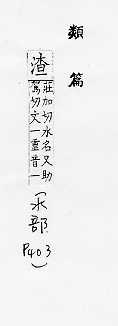 類篇
渣
莊加切水名又助
駕切文一重音一
(水部
P403)